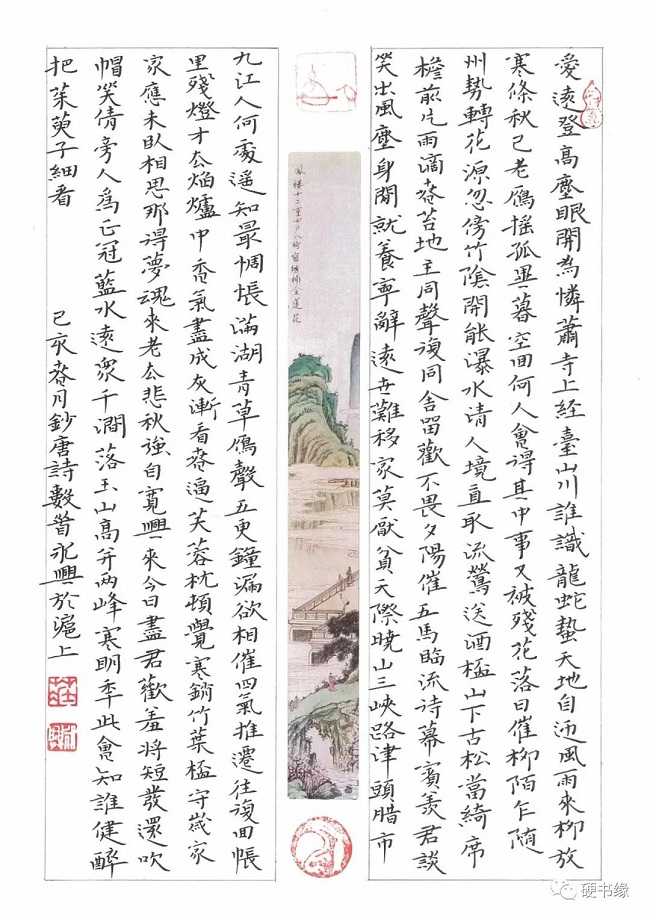 愛遠登高塵眼開為憐蕭寺上經臺山川誰識龍蛇蟄天地自迎風雨來柳放
寒條秋已老雁搖孤翼暮空回何人會得其中事又被殘花落日催柳陌乍隨
州勢轉花源忽傍竹陰開能瀑水清人境直取流鶯送酒杯山下古松當綺席
檐前片雨滴春苔地主同聲復同舍留歡不畏夕陽催五馬臨流诗幕賓羨君談
笑出風塵身閒就養寧辭遠世難移家莫厭貧天際曉山三峽路津頭腊市
鳳樓十二重四戶八綺窗繡桷金蓮花
九江人何處遥知最惆悵滿湖青草雁聲五更鐘漏欲相催四氣推遷往復回帳
里殘燈才去焰爐中香氣盡成灰漸看春逼芙蓉枕頓覺寒銷竹葉杯守歲家
家應未臥相思那得夢魂來老去悲秋強自寬興來今日盡君歡羞將短發還吹
帽笑倩旁人為正冠藍水遠眾千澗落玉山高并兩峰寒明年此會知誰健醉
把茱萸子細看
己亥春月鈔唐詩數首永興於滬上
硬书缘